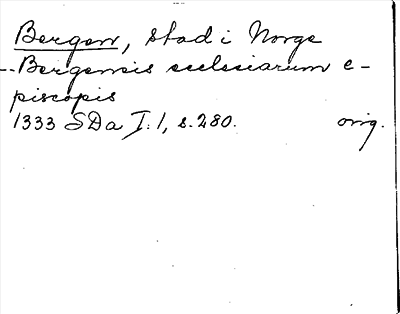 Bergen, stad i Norge
--Bergensis ecclesiarum e-
piscopis
1333 SDa I:1, s. 280. orig.